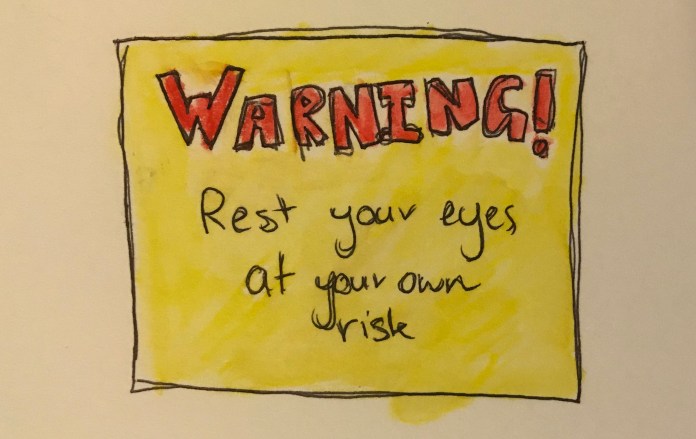 WARNING!
Rest your eyes
at your own
risk